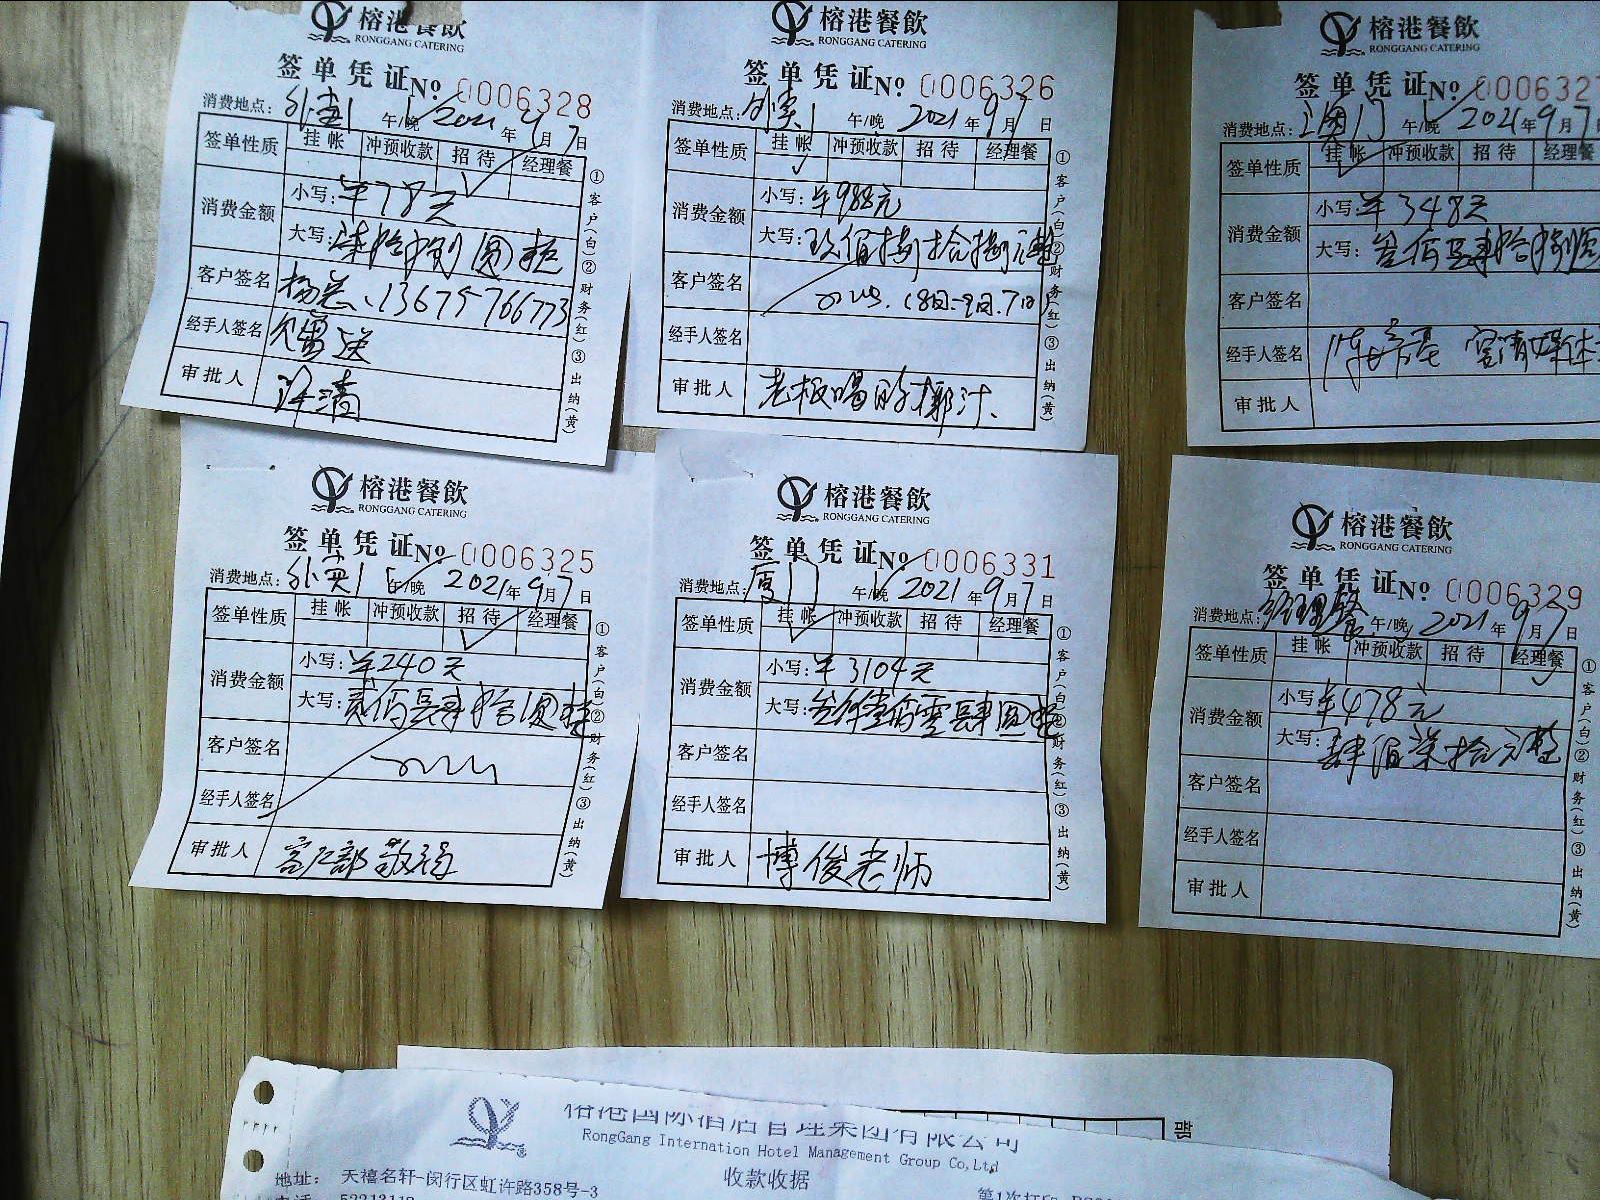 榕港餐飲
RONGGANG CATERING
签单凭证 No 0006328
消费地点: 午/晚 2021年9月7日
签单性质 挂帐 冲预收款 招待 经理餐
消费金额
小写: ¥78元
大写: 柒拾捌圆整
客户签名
经手人签名
审批人 许清
①客户(白)②财务(红)③出纳(黄)
榕港餐飲
RONGGANG CATERING
签单凭证 No 0006326
消费地点: 外卖 午/晚 2021年9月7日
签单性质 挂帐 冲预收款 招待 经理餐
消费金额
小写: ¥988元
大写: 玖佰捌拾捌元整
客户签名
经手人签名
审批人 老板喝的椰汁.
①客户(白)②财务(红)③出纳(黄)
榕港餐飲
RONGGANG CATERING
签单凭证 No 000632
消费地点: 午/晚 2021年9月7
签单性质 挂帐 冲预收款 招待 经理餐
消费金额
小写: ¥348元
大写: 叁佰肆拾捌圆
客户签名
经手人签名
审批人
榕港餐飲
RONGGANG CATERING
签单凭证 No 0006325
消费地点: 外卖 午/晚 2021年9月7日
签单性质 挂帐 冲预收款 招待 经理餐
消费金额
小写: ¥240元
大写: 贰佰肆拾圆整
客户签名
经手人签名
审批人
①客户(白)②财务(红)③出纳(黄)
榕港餐飲
RONGGANG CATERING
签单凭证 No 0006331
消费地点: 厦门 午/晚 2021年9月7日
签单性质 挂帐 冲预收款 招待 经理餐
消费金额
小写: ¥3104元
大写: 叁仟壹佰零肆圆整
客户签名
经手人签名
审批人 博俊老师
①客户(白)②财务(红)③出纳(黄)
榕港餐飲
RONGGANG CATERING
签单凭证 No 0006329
消费地点: 经理餐 午/晚 2021年9月7日
签单性质 挂帐 冲预收款 招待 经理餐
消费金额
小写 ¥478元
大写: 肆佰柒拾元整
客户签名
经手人签名
审批人
①客户(白)②财务(红)③出纳(黄)
榕港国际酒店管理集团有限公司
RongGang Internation Hotel Management Group Co,Ltd
收款收据
地址: 天禧名轩-闵行区虹许路358号-3